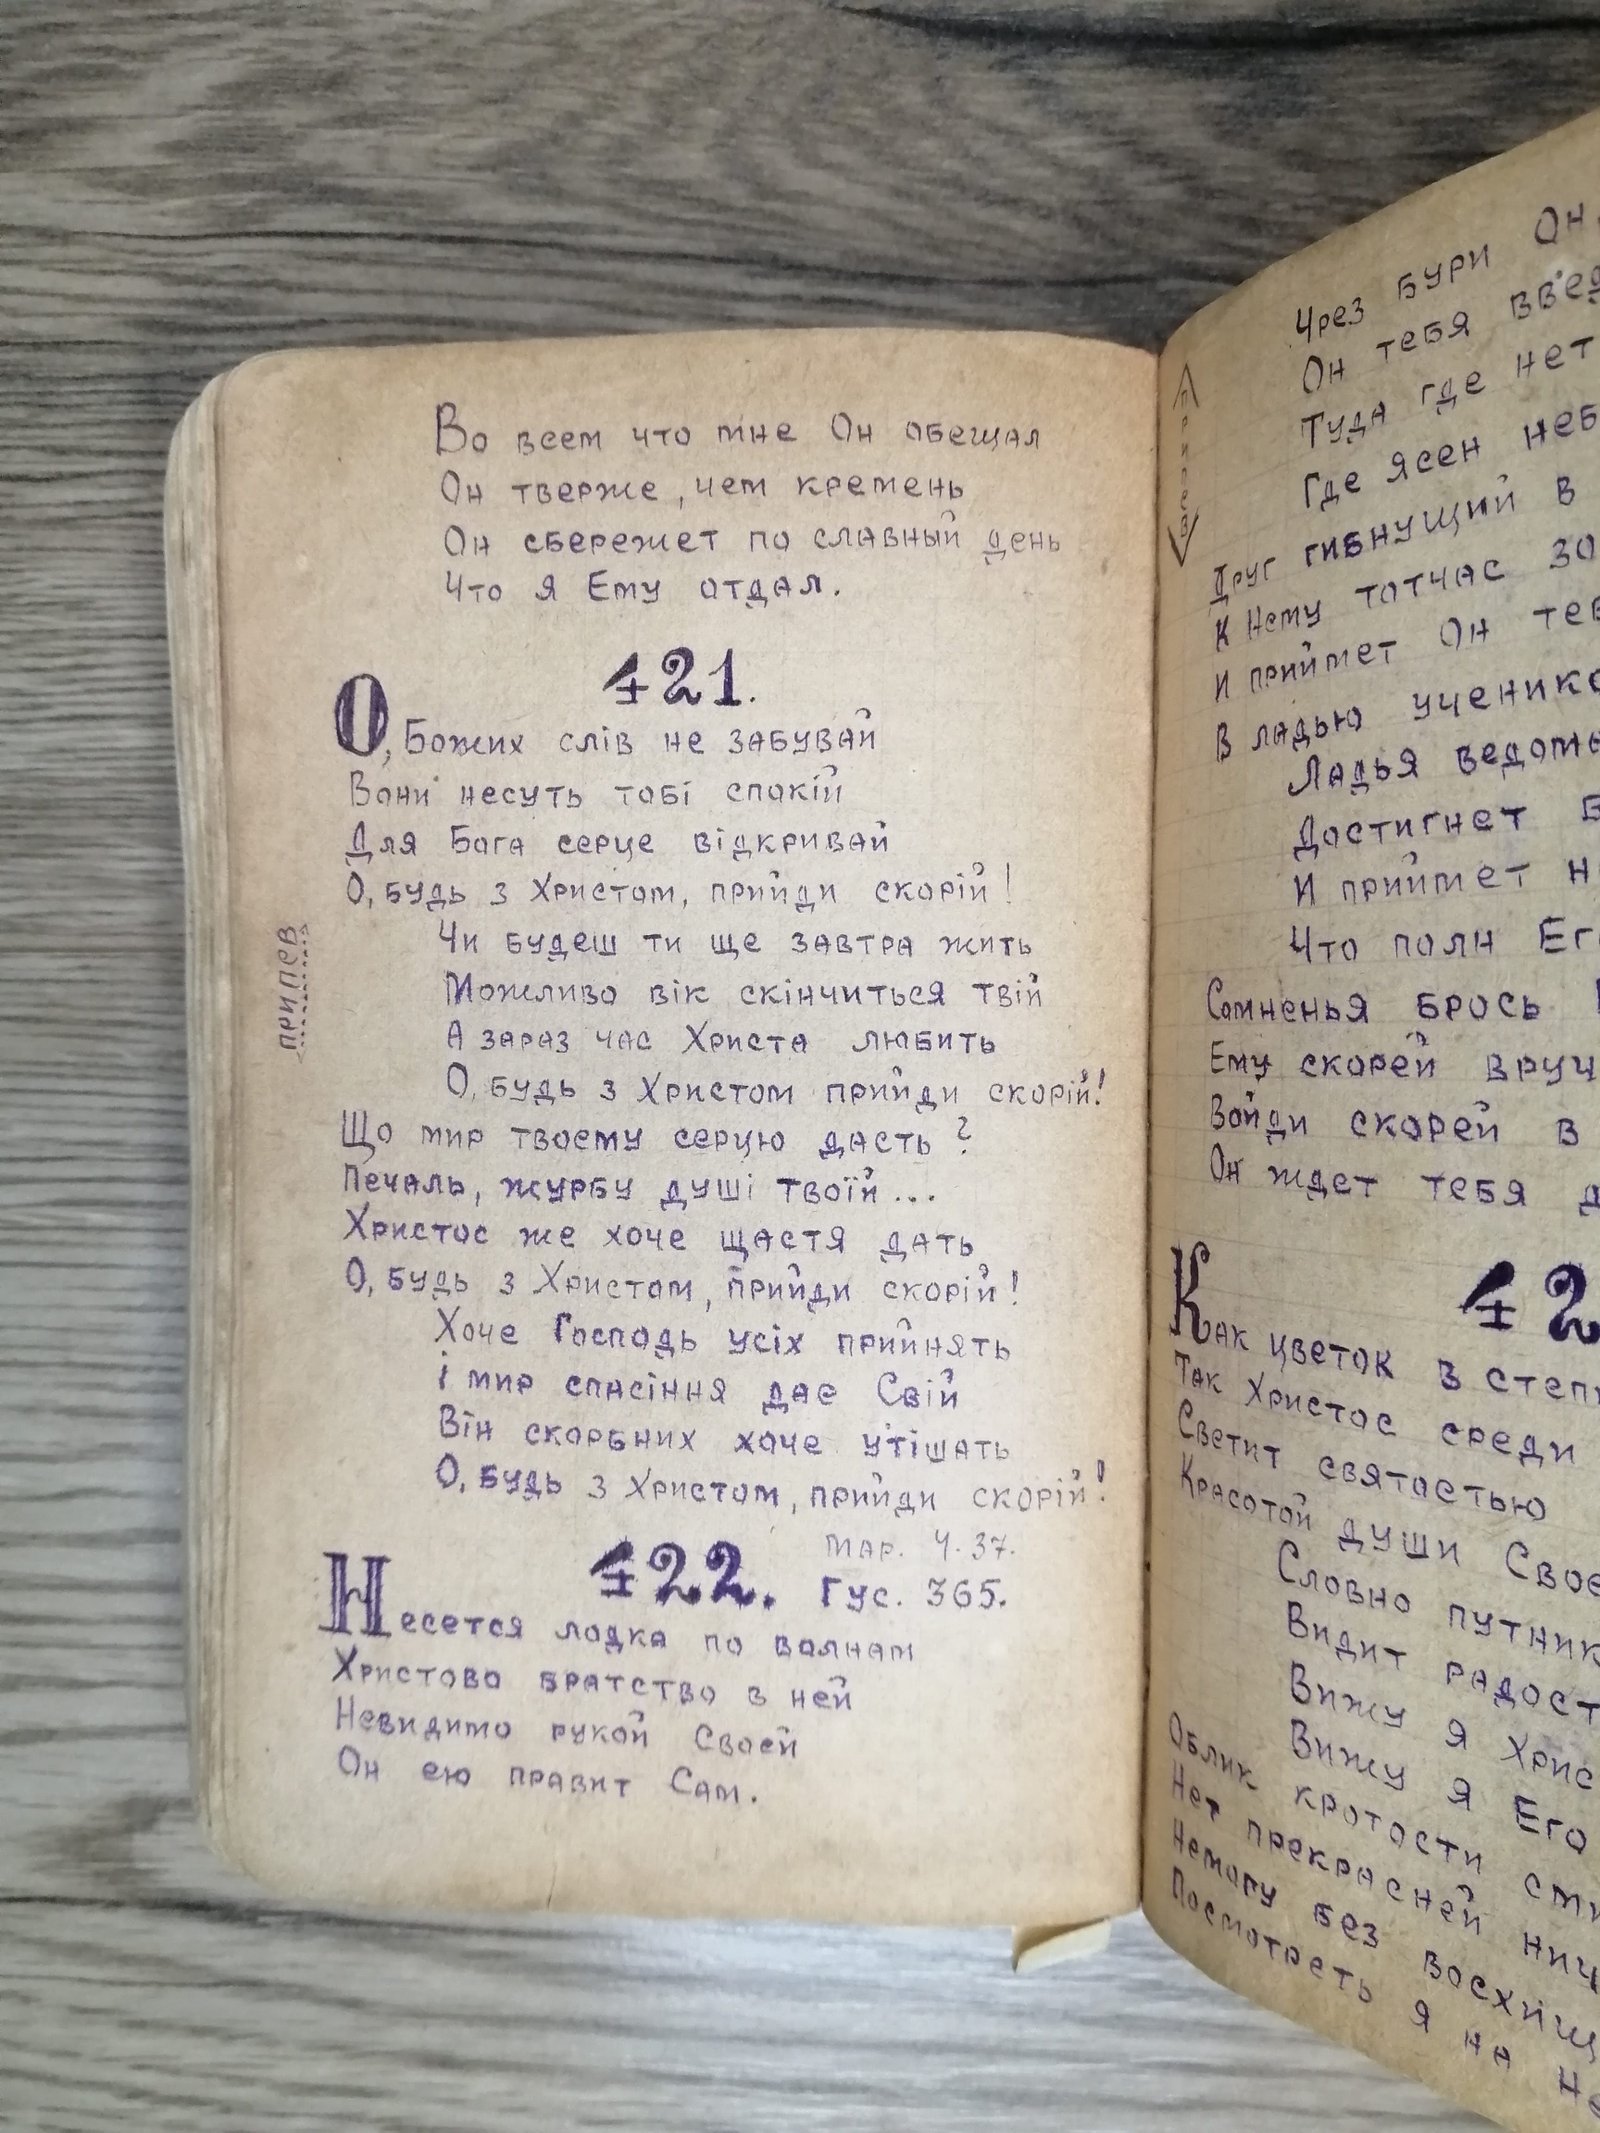 Во всем что мне Он обещал
Он тверже, чем кремень
Он сбережет по славный день
Что я Ему отдал.
421.
О, Божих слів не забувай
Вони несуть тобі спокій
Для Бога серце відкривай
О, будь з Христом, прийди скорій!
припев
Чи будеш ти ще завтра жить
Можливо вік скінчиться твій
А зараз час Христа любить
О, будь з Христом прийди скорій!
Що мир твоєму серцю дасть?
Печаль, журбу душі твоїй...
Христос же хоче щастя дать
О, будь з Христом, прийди скорій!
Хоче Господь усіх прийнять
і мир спасіння дає Свій
Він скорбних хоче утішать
О, будь з Христом, прийди скорій!
422.
Мар. 4.37.
Гус. 365.
Несется лодка по волнам
Христово братство в ней
Невидимо рукой Своей
Он ею правит Сам.
Чрез бури Он,
Он тебя введ
Туда где нет
Где ясен неб
припев
Друг гибнущий в
К Нему тотчас зо
И приймет Он теб
В ладью ученико
Ладья ведома
Достигнет Б
И приймет н
Что полн Ег
Сомненья брось
Ему скорей вруч
Войди скорей в
Он ждет тебя д
42
Как цветок в степи
Так Христос среди
Светит святостью
Красотой души Свое
Словно путник
Видит радост
Вижу я Хрис
Вижу я Его
Облик кротости сми
Нет прекрасней нич
Немогу без восхищ
Посмотреть я на Не